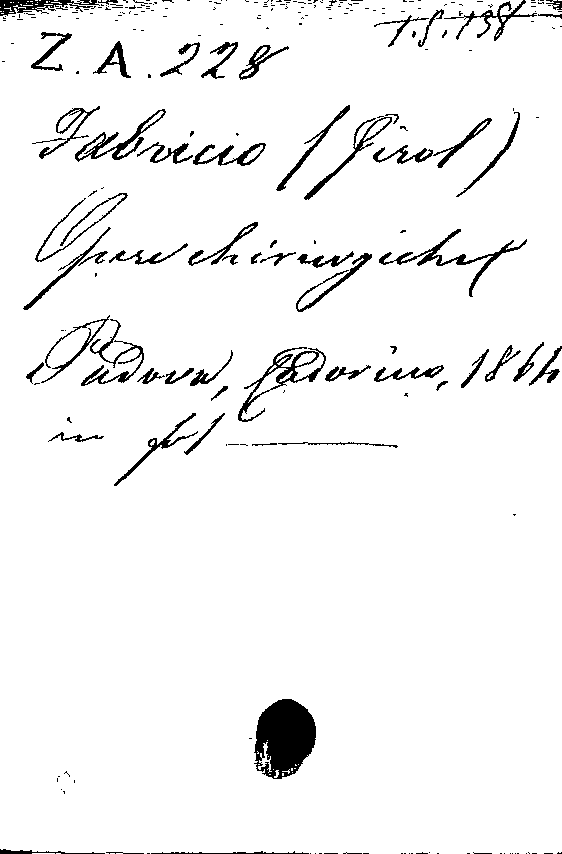 1.S.138
Z.A.228
Fabricio (Girol)
Opere chirurgiche
Padova, Cadorino, 16
in fol